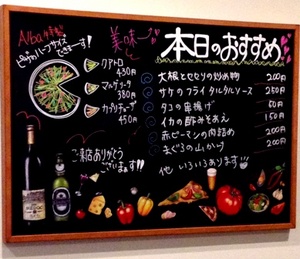 Alba特製
ピザのハーフサイズ
できまーす!
美味しい
クアトロ
430円
マルゲリータ
380円
カプリチョーザ
450円
ご来店ありがとう
ございます!!
本日のおすすめ
大根とセセリの炒め物 200円
サケのフライ タルタルソース 250円
タコの串揚げ 50円
イカの酢みそあえ 150円
赤ピーマンの肉詰め 200円
まぐろの山かけ 200円
他 いろいろあります